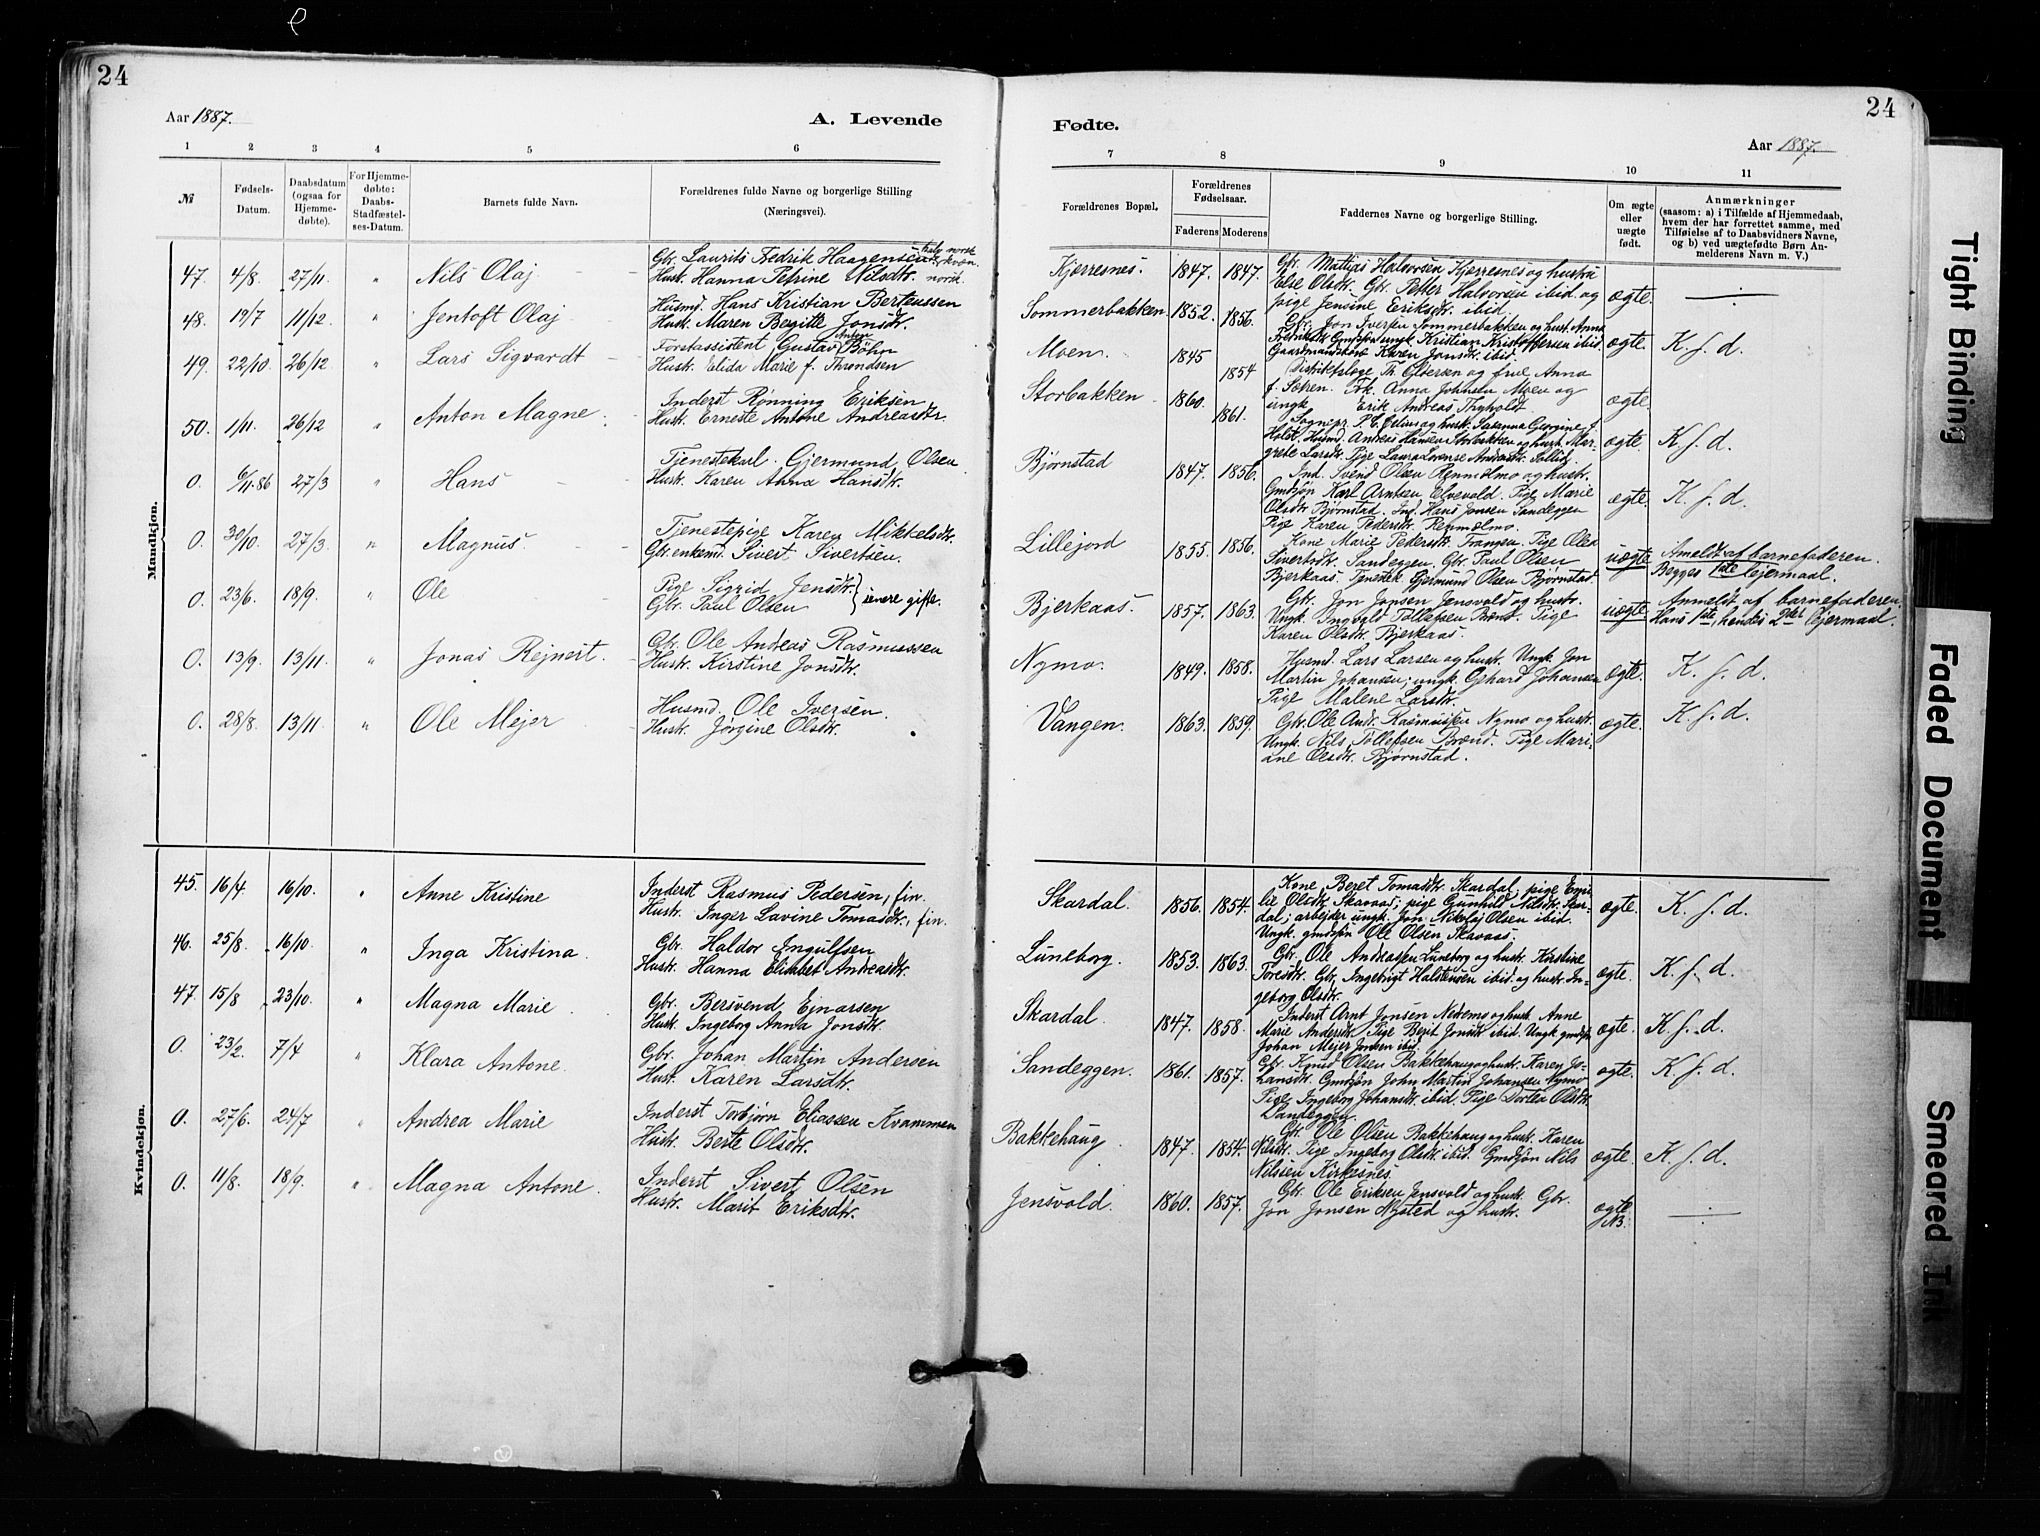 24
24
Aar 1887.
A. Levende
Fødte.
Aar 1887.
1 2 3 4 5 6
7 8 9 10 11
№
Fødsels-Datum.
Daabsdatum (ogsaa for Hjemmedøbte).
For Hjemmedøbte: Daabs-Stadfæstelses-Datum.
Barnets fulde Navn.
Forældrenes fulde Navne og borgerlige Stilling (Næringsvei).
Forældrenes Bopæl.
Forældrenes Fødselsaar.
Faderens
Moderens
Faddernes Navne og borgerlige Stilling.
Om ægte eller uægte født.
Anmærkninger
(saasom: a) i Tilfælde af Hjemmedaab, hvem der har forrettet samme, med Tilføielse af to Daabsvidners Navne, og b) ved uægtefødte Børn Anmelderens Navn m. V.)
Mandkjøn.
47. 4/8 27/11 " Nils Olaj
Gbr. Laurits Fredrik Haagensen halv norsk kvæn
Hust. Hanna Petrine Nilsdtr. norsk
Kjerresnes. 1847. 1847.
Gbr. Mathias Halvorsen Kjerresnes og hustru
Else Olsdtr. Gbr. Petter Halvorsen ibid. og
pige Jensine Eriksdtr. ibid.
ægte.
48. 19/7 11/12 " Jentoft Olaj
Husmd. Hans Kristian Berteussen
Hust. Maren Bergitte Jonsdtr.
Sommerbakken. 1852. 1856.
Gbr. Jon Iversen Sommerbakken og hust. Anna
Fredriksdtr. Gmdssøn ungk. Kristian Kristoffersen ibid.
Gaardmandsdatr. Karen Jonsdtr. ibid.
ægte. K. f. d.
49. 22/10. 26/12 " Lars Sigvardt
Forstassistent Gustav Böhn
Hust. Elida Marie f. Throndsen
Moen. 1845 1854
Distriktslæge Th. og frue Anna
f. Frk. Anna Johnsen Moen og
ungk Erik Andreas Thyholdt.
ægte.
50. 1/11. 26/12 " Anton Magne.
Inderst Rønning Eriksen
Hust. Erneste Antone Andreasdtr.
Storbakken 1860. 1861.
Sognepr. og hust. Susanna Georgine f.
Holst. Husmd. Andreas Hansen Storbakken og hust. Margrete Larsdtr. Pige Laura Lovense Andersdtr.
ægte K. f. d.
0. 6/11.86 27/3 " Hans
Tjenestekarl. Gjermund Olsen
Hust. Karen Anna Hansdtr.
Bjørnstad 1847. 1856.
Ind. Svend Olsen Renmælmo og hustr.
Gmdsøn Karl Arntsen Elvevold. Pige Marie
Olsdtr Bjørnstad. Ind. Hans Jonsen Sandeggen
Pige Karen Pedersdtr. Renmælmo.
ægte. K. f. d.
0. 30/10. 27/3. " Magnus.
Tjenestepige Karen Mikkelsdtr.
Gbr. enkemd. Sivert Sivertsen.
Lillejord 1855. 1856.
Kone Marie Pedersdtr. Trangen. Pige Olea
Sivertsdtr. Sandeggen. Gbr. Paul Olsen
Bjerkaas. Tjenestek. Gjermund Olsen Bjørnstad
uægte. Anmeldt af barnefaderen.
Begges 1ste lejermaal.
0. 23/6. 18/9. " Ole
Pige Sigrid Jensdtr.
Gbr. Paul Olsen
senere gifte.
Bjerkaas. 1857. 1863.
Gbr. Jon Jonsen Jensvold og hustr.
Ungk. Ingvald Tollefsen Brænd. Pige
Karen Olsdtr. Bjerkaas.
uægte. Anmeldt af barnefaderen.
Hans 1ste, hendes 2det lejermaal.
0. 13/9. 13/11. " Jonas Rejnert.
Gbr. Ole Andreas Rasmussen
Hust. Kirstine Jonsdtr.
Nymo. 1849. 1858.
Husmd. Lars Larsen og hust. Ungk. Jon
Martin Johansen; ungk. Gerhard Johansen
Pige Malene Larsdtr.
ægte. K. f. d.
0. 28/8. 13/11. " Ole Mejer
Husmd. Ole Iversen.
Hust. Jørgine Olsdtr.
Vangen. 1863. 1859.
Gbr. Ole Andr. Rasmussen Nymo og hustr.
Ungk. Nils Tollefsen Brænd. Pige Mariane Olsdtr. Bjørnstad.
ægte. K. f. d.
Kvindekjøn.
45. 16/4 16/10. " Anne Kristine
Inderst Rasmus Pedersen, fin.
Hust. Inger Lavine Tomasdtr., fin.
Skardal. 1856. 1854.
Kone Beret Tomasdtr. Skardal; pige Emilie Olsdtr. Skavaas; pige Gunhild Nilsdtr. Skardal; arbejder ungk. Jon Nikolaj Olsen ibid.
Ungk. gmdsøn Ole Olsen Skavaas.
ægte. K. f. d.
46. 25/8. 16/10. " Inga Kristina.
Gbr. Haldor Ingulfsen
Hust. Hanna Elisabet Andreasdtr.
Lüneborg. 1853. 1863.
Gbr. Ole Andreassen Lüneborg og hustr. Kirstine
Toresdtr. Gbr. Ingebrigt Halstensen ibid. og hustr. Ingeborg Olsdtr.
ægte. K. f. d.
47. 15/8 23/10. " Magna Marie
Gbr. Bersvend Ejnarsen
Hust. Ingeborg Anna Jonsdtr.
Skardal. 1847. 1858.
Inderst Arnt Jonsen Nedremo og hust. Anne
Marie Andersdtr. Pige Berit Jonsdtr. ibid. Ungk. gmdsøn
Johan Mejer Jonsen ibid.
ægte. K. f. d.
0. 23/2. 7/4 " Klara Antone.
Gbr. Johan Martin Andersen
Hust. Karen Larsdtr.
Sandeggen. 1861. 1857.
Gbr. Knud Olsen Bakkehaug og hustr. Karen Johansdtr. Gmdsøn John Martin Johansen Nymo
Pige Ingeborg Johansdtr. ibid. Pige Dortea Olsdtr.
Sandeggen.
ægte. K. f. d.
0. 27/6. 24/7 " Andrea Marie
Inderst Torbjørn Eliassen Kvammen
Hust. Berte Olsdtr.
Bakkehaug 1847. 1854.
Gbr. Ole Olsen Bakkehaug og hustr. Karen
Nilsdtr. Pige Ingeborg Olsdtr. ibid. Gmdsøn Nils
Nilssen Kirkesnes.
ægte. K. f. d.
0. 11/8. 18/9. " Magna Antone.
Inderst Sivert Olsen
Hust. Marit Eriksdtr.
Jensvold. 1860. 1857.
Gbr. Ole Eriksen Jensvold og hustr. Gbr.
Jon Jonsen Nysted og hustr.
ægte
NB.
Tight Binding
Faded Document
Smeared Ink